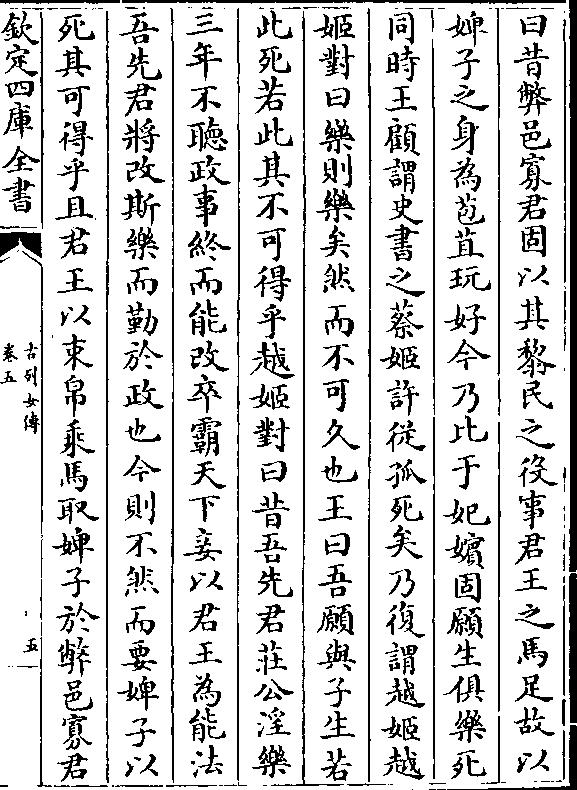 曰昔弊邑寡君固以其黎民之役事君王之馬足故以
婢子之身為苞苴玩好今乃比于妃嬪固願生俱樂死
同時王顧謂史書之蔡姬許從孤死矣乃復謂越姬越
姬對曰樂則樂矣然而不可久也王曰吾願與子生若
此死若此其不可得乎越姬對曰昔吾先君莊公淫樂
三年不聽政事終而能改卒霸天下妾以君王為能法
吾先君將改斯樂而勤於政也今則不然而要婢子以
死其可得乎且君王以束帛乘馬取婢子於弊邑寡君
欽定四庫全書
古列女傳
卷五
五